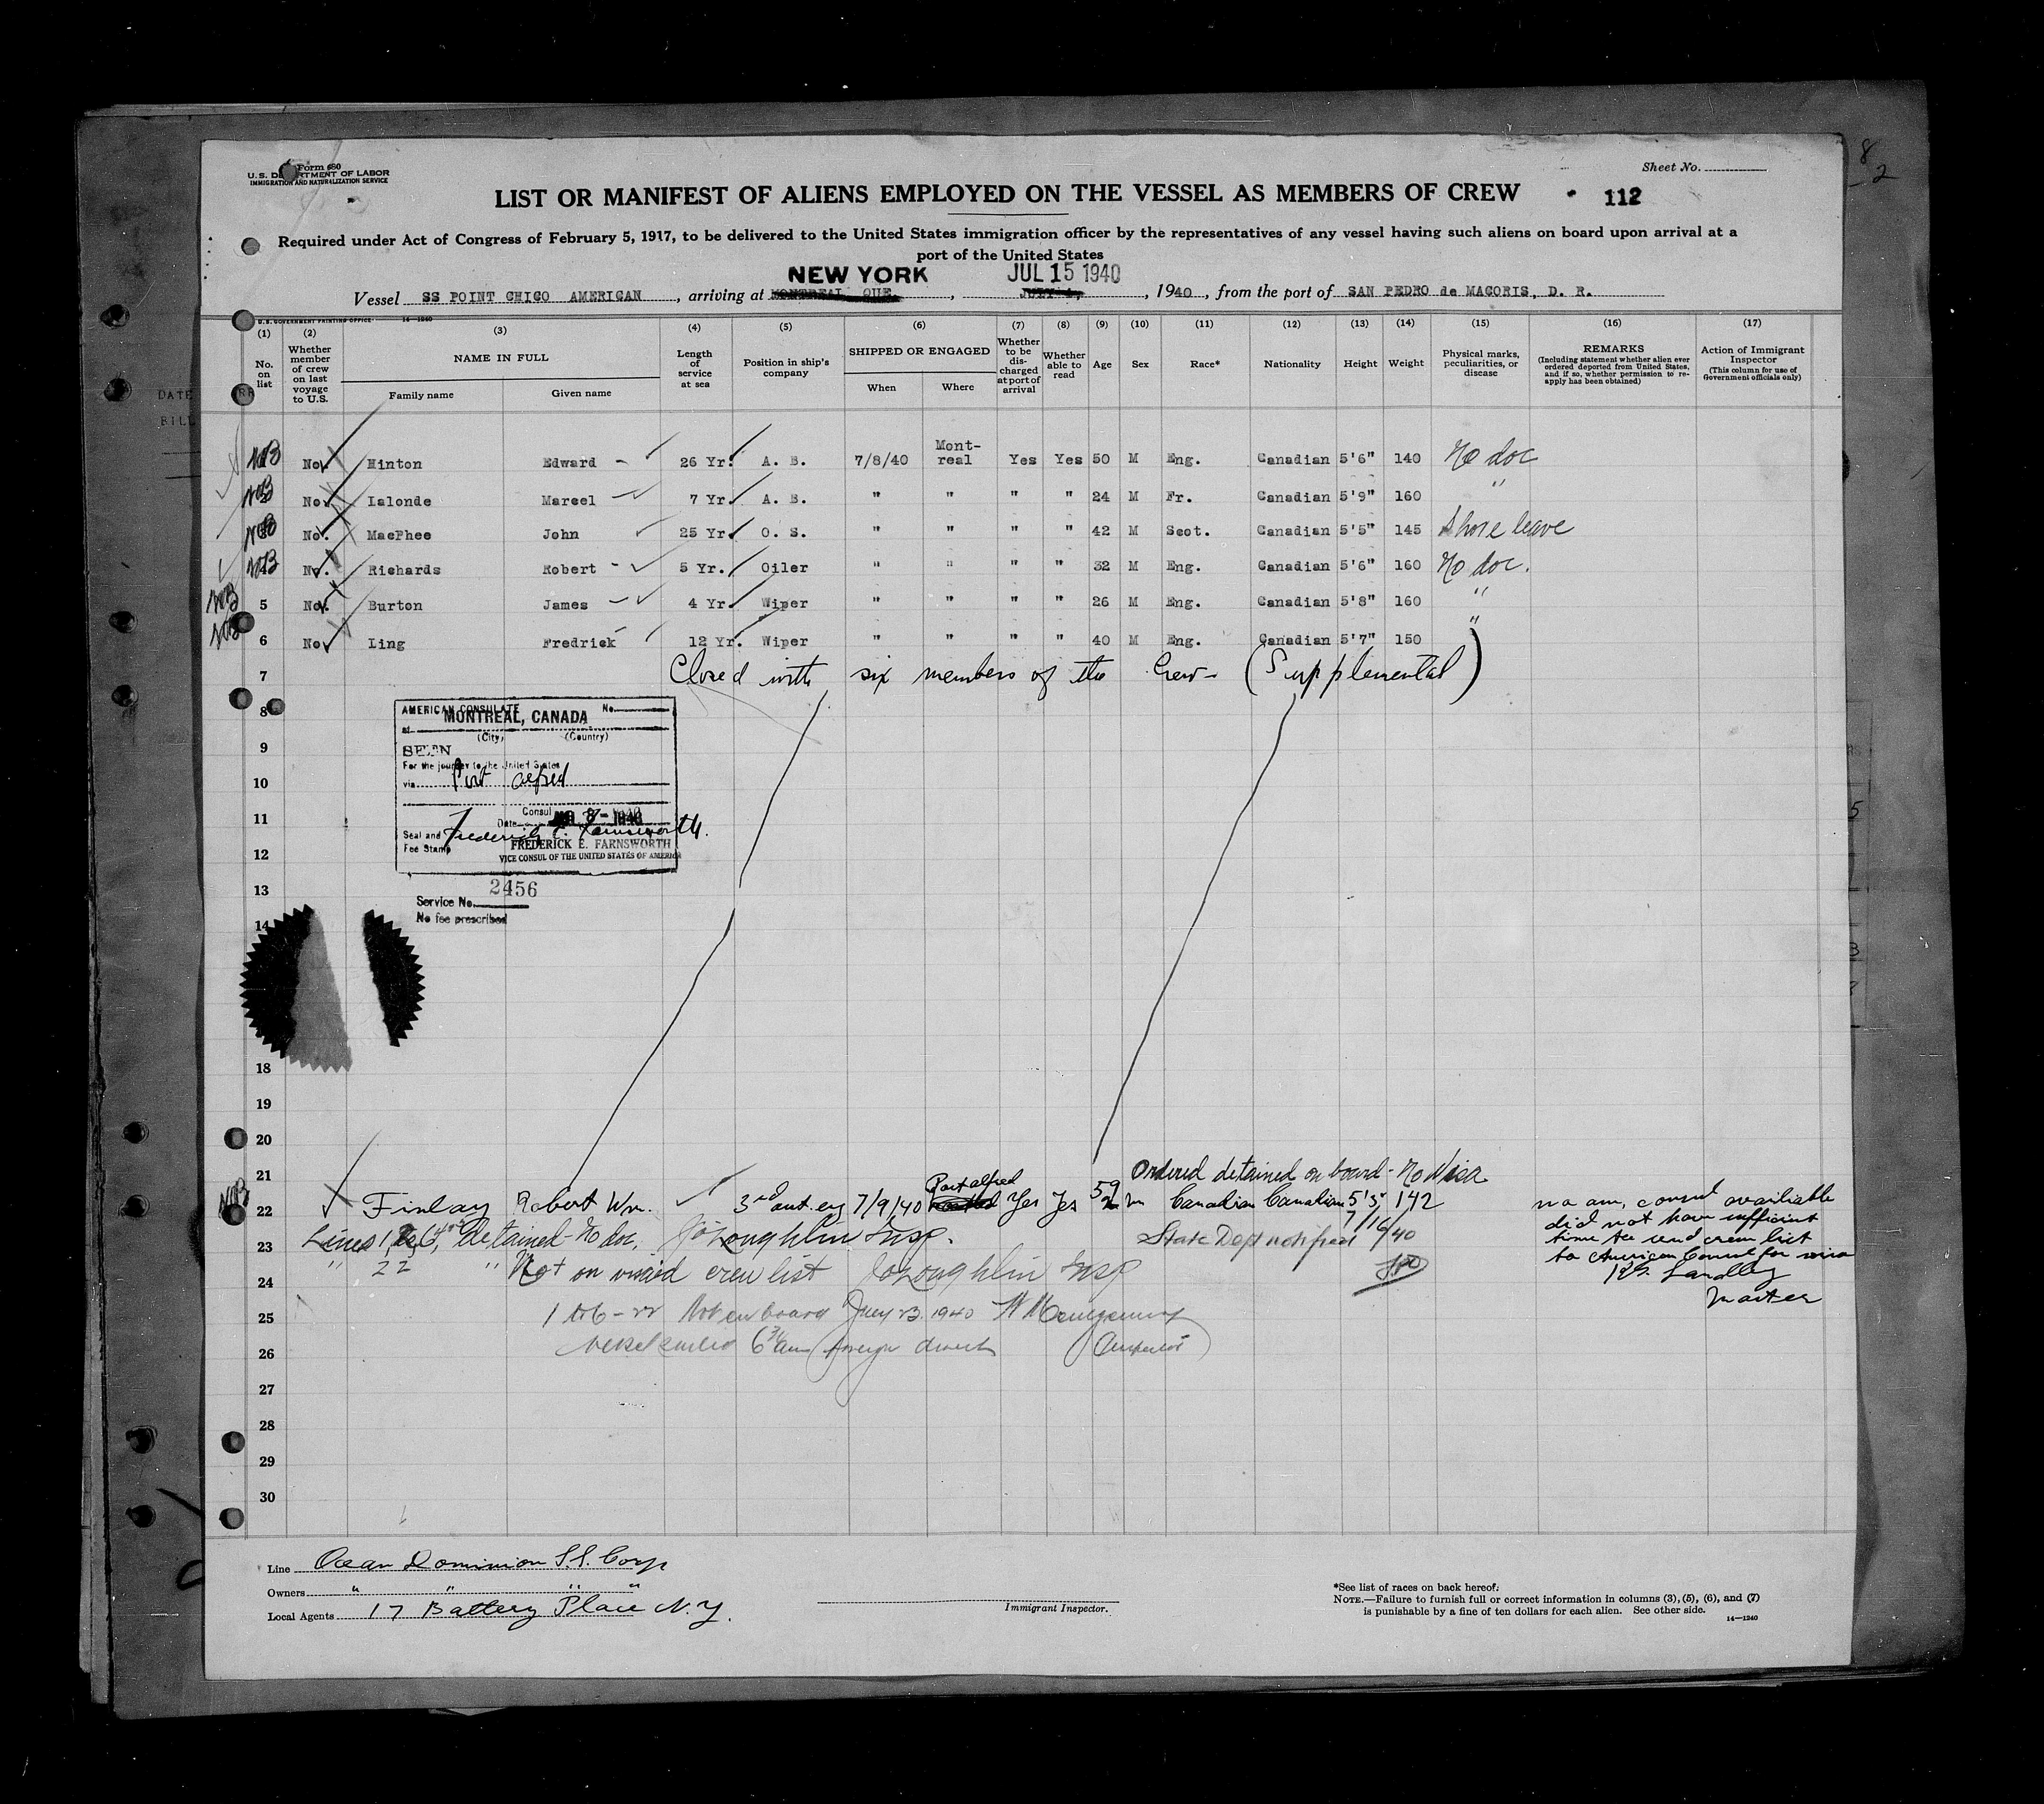 Form 680
U.S. DEPARTMENT OF LABOR
IMMIGRATION AND NATURALIZATION SERVICE
Sheet No.
8
2
LIST OR MANIFEST OF ALIENS EMPLOYED ON THE VESSEL AS MEMBERS OF CREW
112
Required under Act of Congress of February 5, 1917, to be delivered to the United States immigration officer by the representatives of any vessel having such aliens on board upon arrival at a
port of the United States
NEW YORK JUL 15 1940
Vessel SS POINT CHICO AMERICAN, arriving at MONTREAL QUE., JULY 1, 1940, from the port of SAN PEDRO de MACORIS, D. R.
U.S. GOVERNMENT PRINTING OFFICE 14-1240
(1) (2) (3) (4) (5) (6) (7) (8) (9) (10) (11) (12) (13) (14) (15) (16) (17)
No. on list
Whether member of crew on last voyage to U.S.
NAME IN FULL
Family name
Given name
Length of service at sea
Position in ship's company
SHIPPED OR ENGAGED
When
Where
Whether to be discharged at port of arrival
Whether able to read
Age
Sex
Race*
Nationality
Height
Weight
Physical marks, peculiarities, or disease
REMARKS
(Including statement whether alien ever ordered deported from United States, and if so, whether permission to reapply has been obtained)
Action of Immigrant Inspector
(This column for use of Government officials only)
DATE
BILL
No. Hinton Edward 26 Yr. A. B. 7/8/40 Mont-real Yes Yes 50 M Eng. Canadian 5'6" 140 No doc
No. Lalonde Marcel 7 Yr. A. B. " " " " 24 M Fr. Canadian 5'9" 160 "
No. MacPhee John 25 Yr. O. S. " " " " 42 M Scot. Canadian 5'5" 145 Shore leave
No. Richards Robert 5 Yr. Oiler " " " " 32 M Eng. Canadian 5'6" 160 No doc.
5 No. Burton James 4 Yr. Wiper " " " " 26 M Eng. Canadian 5'8" 160 "
6 No. Ling Fredrick 12 Yr. Wiper " " " " 40 M Eng. Canadian 5'7" 150 "
7 Closed with six members of the Crew - (Supplemental)
8
9
10
11
12
13
14
AMERICAN CONSULATE No.
at MONTREAL, CANADA
(City) (Country)
SEEN
For the journey to the United States
via Port Alfred
Consul
Date
Seal and Fee Stamp
Frederick E. Farnsworth
FREDERICK E. FARNSWORTH
VICE CONSUL OF THE UNITED STATES OF AMERICA
2456
Service No.
No fee prescribed
18
19
20
21 Ordered detained on board - No Visa
22 Finlay Robert Wm. 3rd ast. eng 7/9/40 Port alfred Yes Yes 59 m Canadian Canadian 5'5" 142
no am. consul available
did not have sufficient
time to send crew list
to American Consul for visa
Master
23 Lines 1, 2, 6, detained - No doc. Insp.
State Dept notified 7/16/40
24 " 22 " Not on visaed crew list Insp
25 1 to 6 - 22 Not on board July 23. 1940
26 vessel sailed 6 am (foreign direct
27
28
29
30
Line Ocean Dominion S.S. Corp
Owners " " " "
Local Agents 17 Battery Place N.Y.
Immigrant Inspector.
*See list of races on back hereof.
NOTE.—Failure to furnish full or correct information in columns (3), (5), (6), and (7)
is punishable by a fine of ten dollars for each alien. See other side.
14-1240